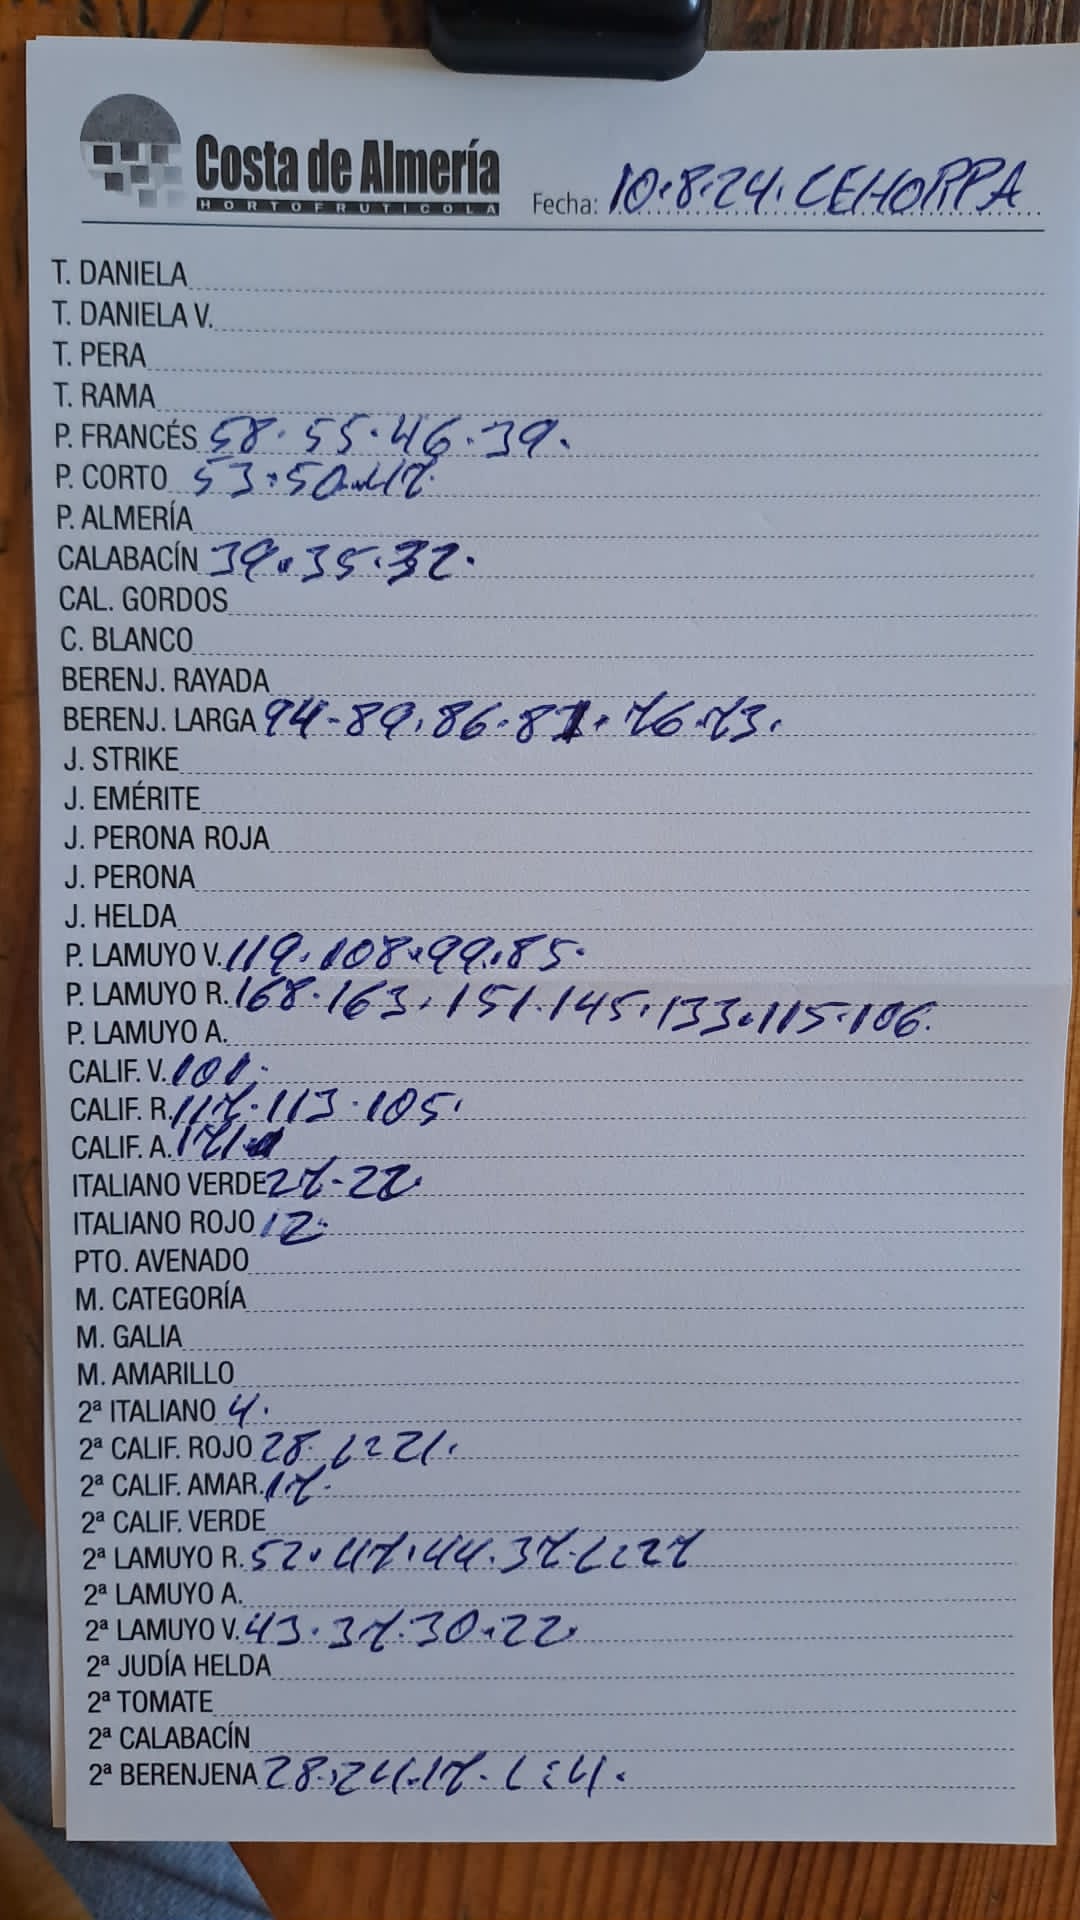 Costa de Almería
HORTOFRUTICOLA
Fecha: 10.8.24. CEHORPA
T. DANIELA
T. DANIELA V.
T. PERA
T. RAMA
P. FRANCÉS 58. 55. 46. 39.
P. CORTO 53. 50. 47.
P. ALMERÍA
CALABACÍN 39. 35. 32.
CAL. GORDOS
C. BLANCO
BERENJ. RAYADA
BERENJ. LARGA 94-89. 86. 81. 76. 73.
J. STRIKE
J. EMÉRITE
J. PERONA ROJA
J. PERONA
J. HELDA
P. LAMUYO V. 119. 108. 99. 85.
P. LAMUYO R. 168. 163. 151. 145. 133. 115. 106.
P. LAMUYO A.
CALIF. V. 101.
CALIF. R. 117. 113. 105.
CALIF. A. 171.
ITALIANO VERDE 27-22.
ITALIANO ROJO 12.
PTO. AVENADO
M. CATEGORÍA
M. GALIA
M. AMARILLO
2ª ITALIANO 4.
2ª CALIF. ROJO 28. 21.
2ª CALIF. AMAR. 17.
2ª CALIF. VERDE
2ª LAMUYO R. 52. 47. 44. 37. 27
2ª LAMUYO A.
2ª LAMUYO V. 43. 37. 30. 22.
2ª JUDÍA HELDA
2ª TOMATE
2ª CALABACÍN
2ª BERENJENA 28. 24. 17. 4.